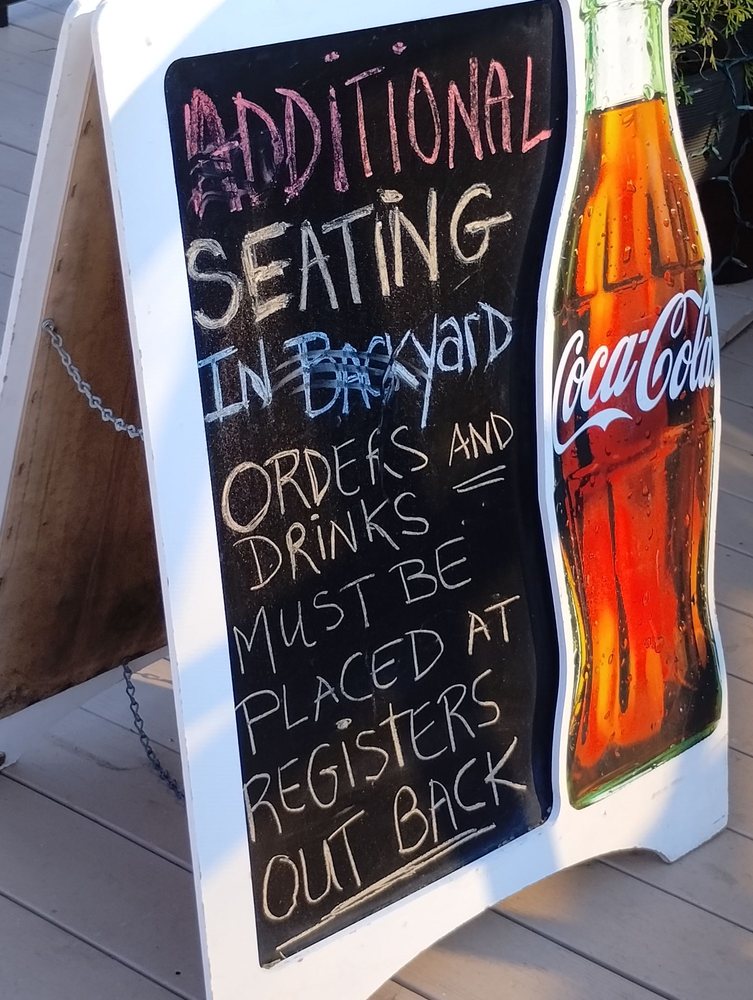 ADDITIONAL
SEATING
IN BACKyarD
ORDERS AND
DRINKS
MUST BE
PLACED AT
REGISTERS
OUT BACK
Coca-Cola